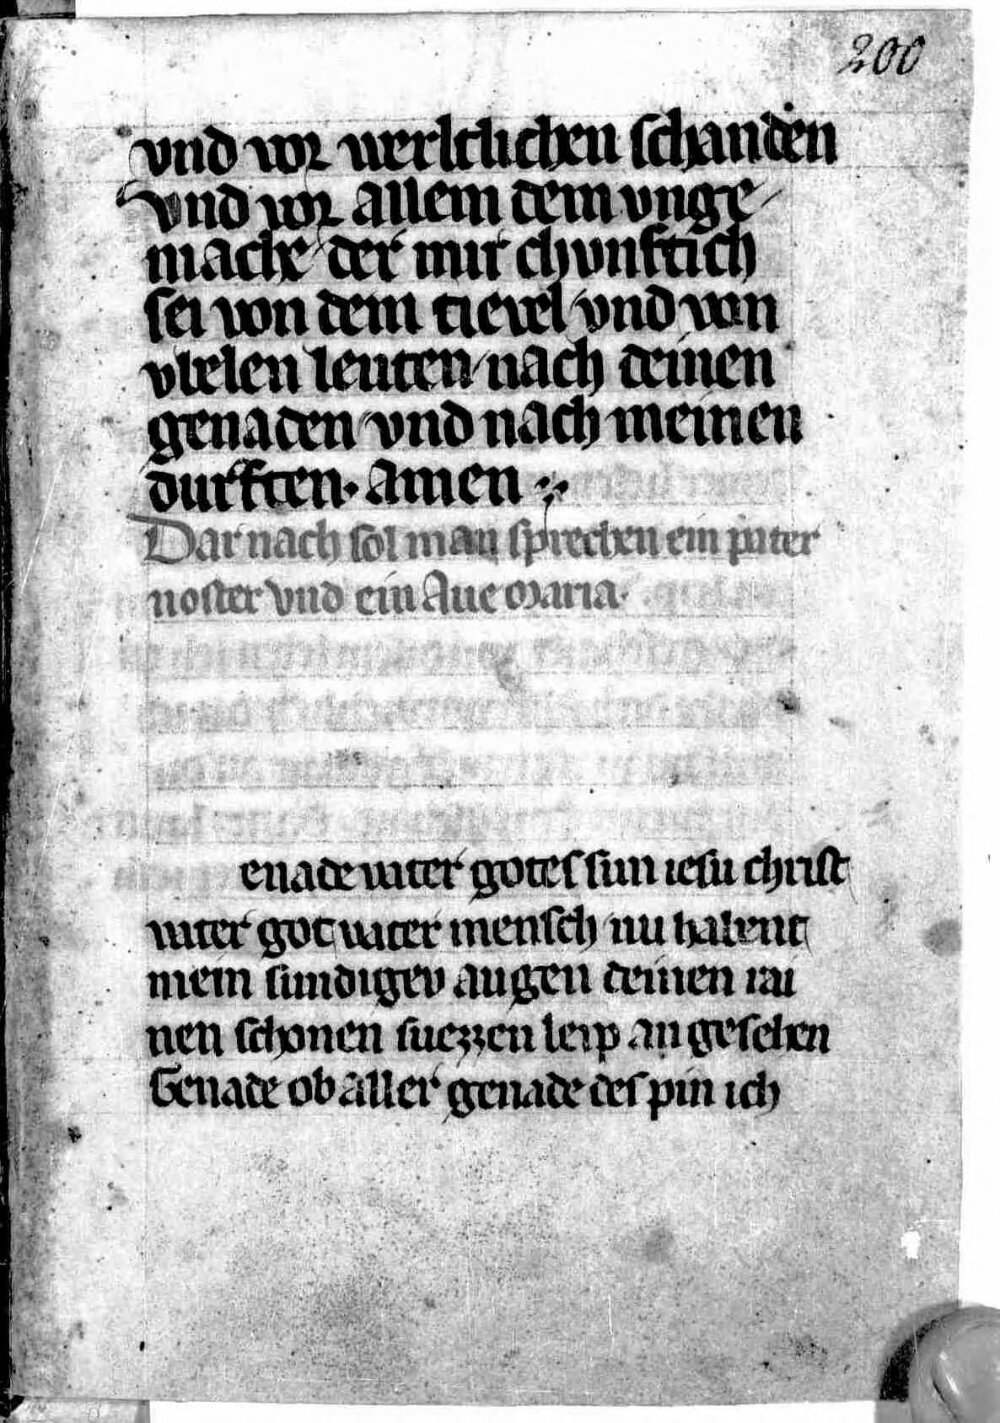 200
vnd vor werltlichen schanden
vnd vor allem dem vnge
mache der mir chvnftich
sei von dem tievel vnd von
vbelen leuten nach deinen
genaden vnd nach meinen
durften. Amen
Dar nach sol man sprechen ein pater
noster vnd ein Aue Maria.
enade vater gotes sun iesu christ
vater got vater mensch nu habent
mein sundigev augen deinen rai
nen schonen suezzen leip an gesehen
Genade ob aller genade des pin ich